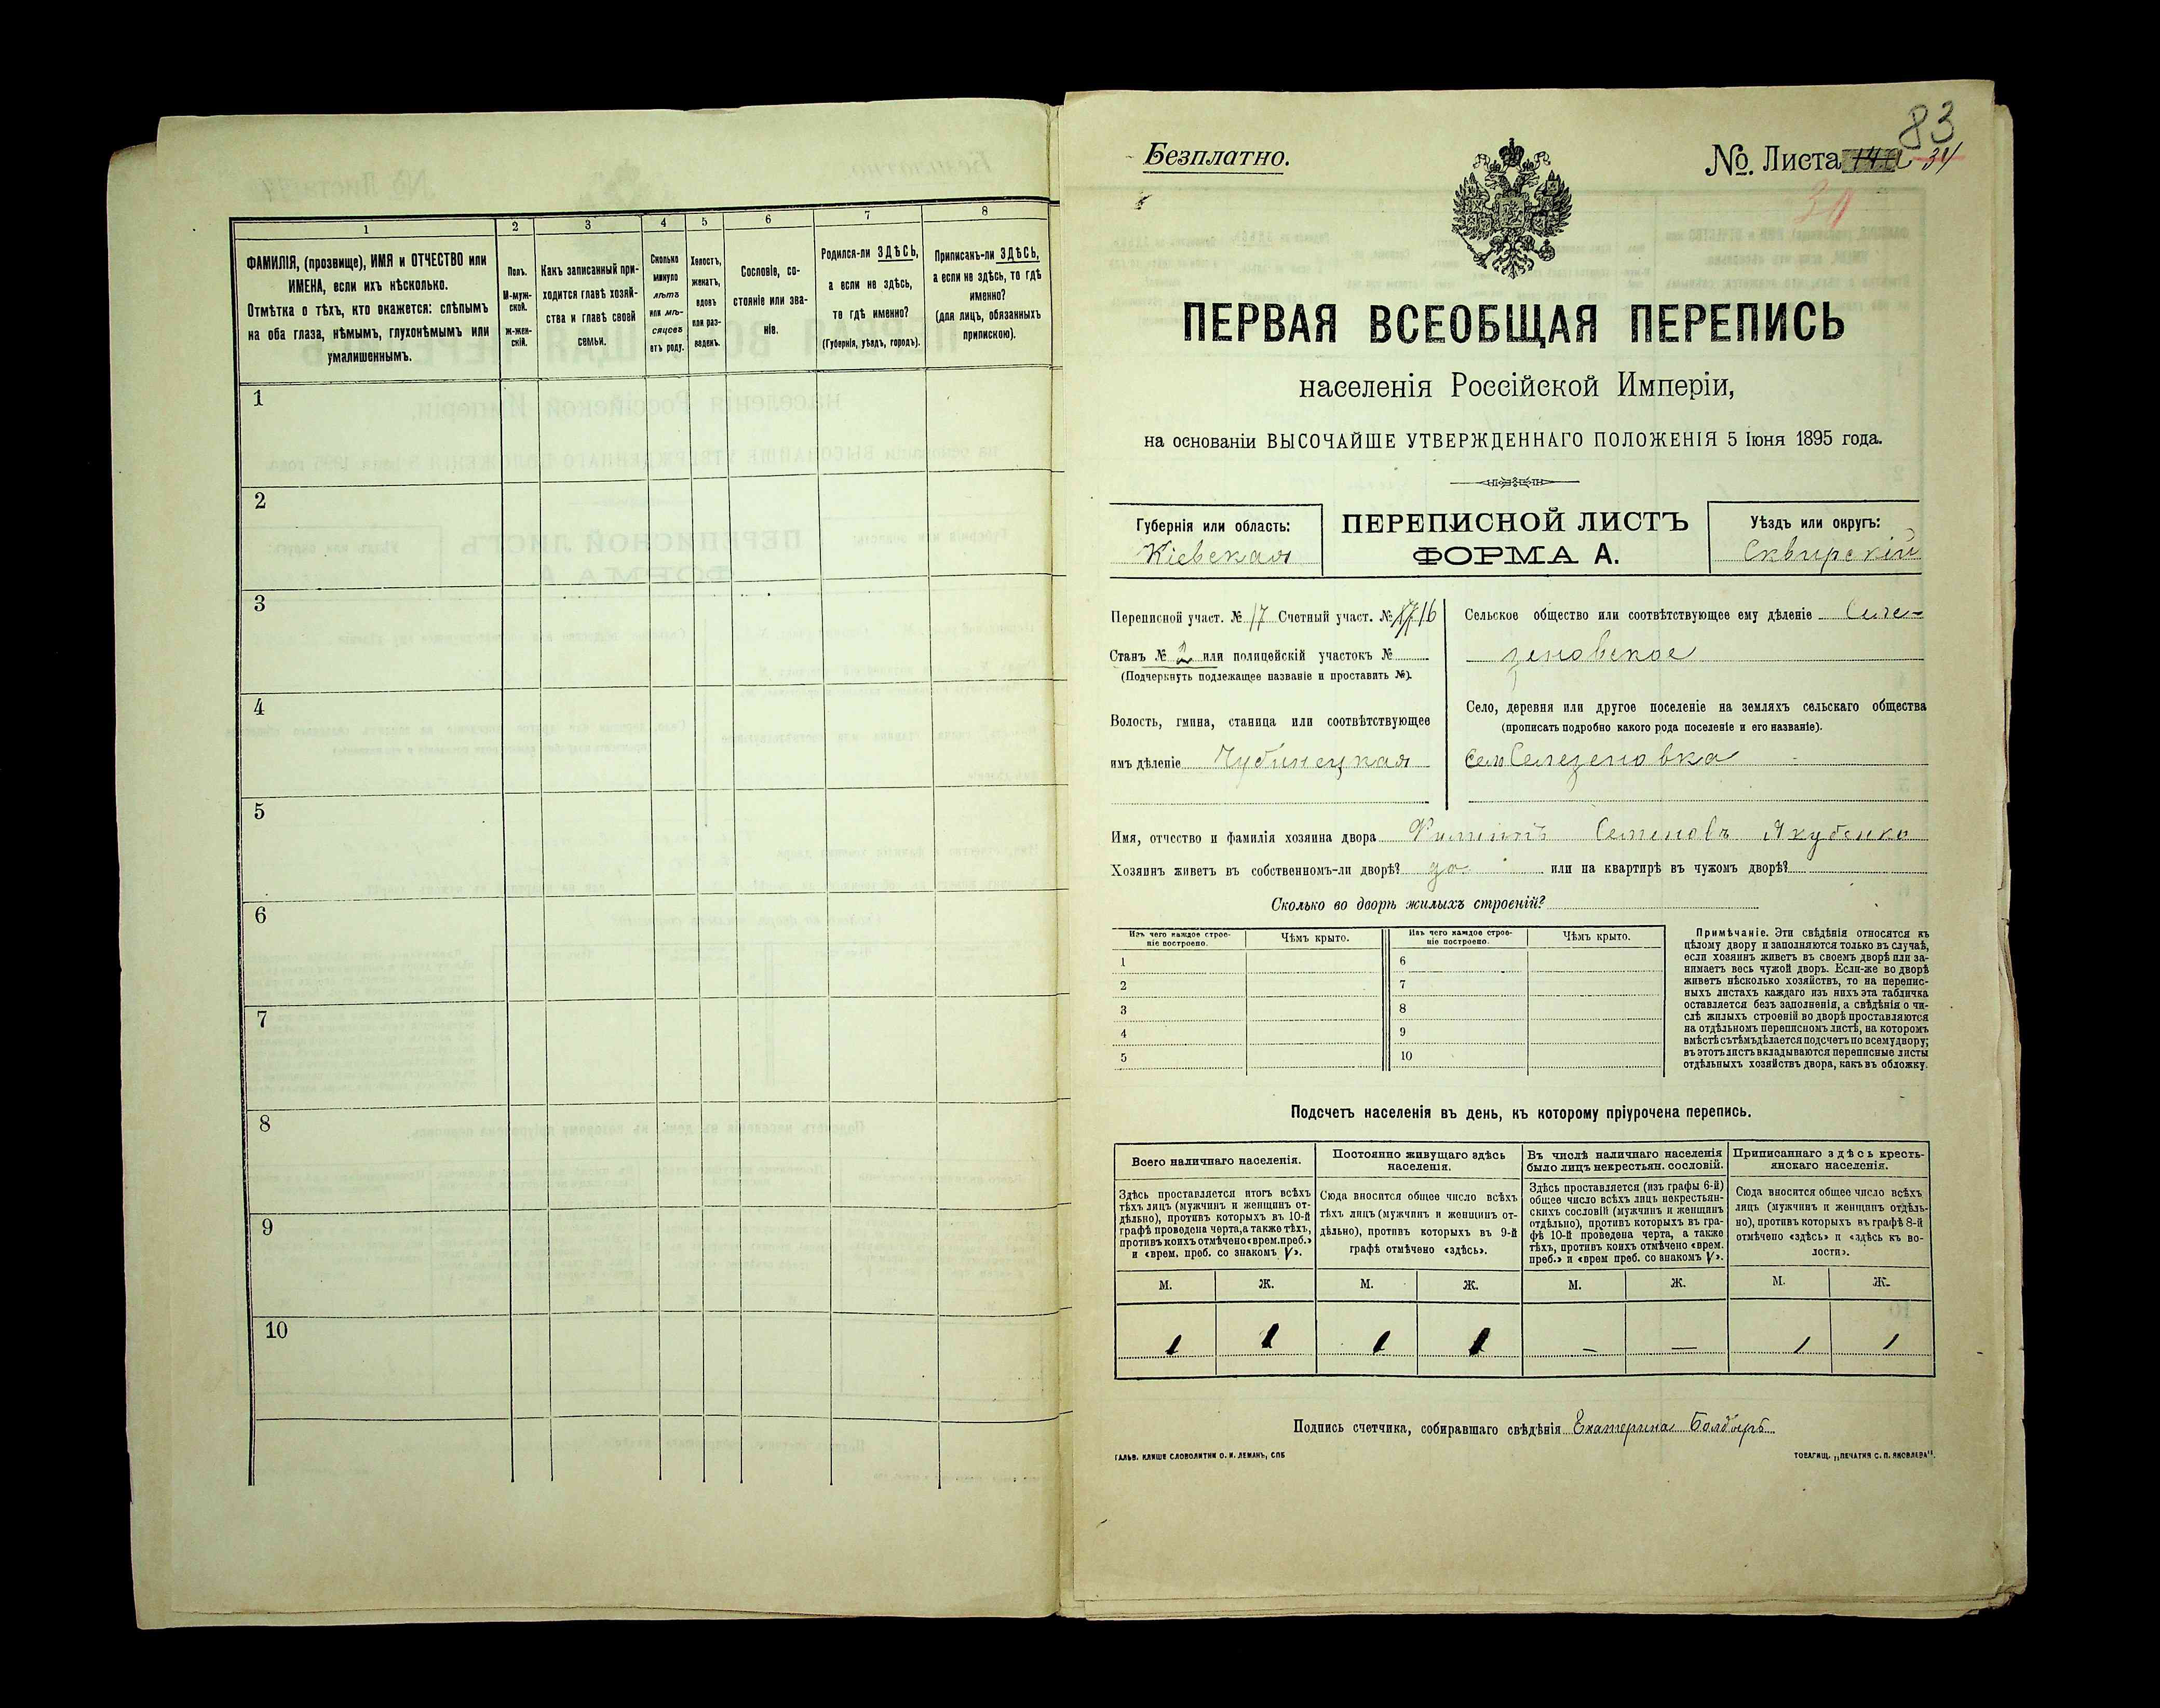 1
2
3
4
5
6
7
8
ФАМИЛІЯ, (прозвище), ИМЯ и ОТЧЕСТВО или
ИМЕНА, если ихъ нѣсколько.
Отмѣтка о тѣхъ, кто окажется: слѣпымъ
на оба глаза, нѣмымъ, глухонѣмымъ или
умалишеннымъ.
Полъ.
М-муж-
ской.
ж-жен-
скій.
Какъ записанный при-
ходится главѣ хозяй-
ства и главѣ своей
семьи.
Сколько
минуло
лѣтъ
или мѣ-
сяцевъ
отъ роду.
Холостъ,
женатъ,
вдовъ
или раз-
веденъ.
Сословіе, со-
стояніе или зва-
ніе.
Родился-ли ЗДѢСЬ,
а если не здѣсь,
то гдѣ именно?
(Губернія, уѣздъ, городъ).
Приписанъ-ли ЗДѢСЬ,
а если не здѣсь, то гдѣ
именно?
(для лицъ, обязанныхъ
припискою).
1
2
3
4
5
6
7
8
9
10
83
Безплатно.
№. Листа 34
34
ПЕРВАЯ ВСЕОБЩАЯ ПЕРЕПИСЬ
населенія Россійской Имперіи,
на основаніи ВЫСОЧАЙШЕ УТВЕРЖДЕННАГО ПОЛОЖЕНІЯ 5 Іюня 1895 года.
Губернія или область:
Кіевская
ПЕРЕПИСНОЙ ЛИСТЪ
ФОРМА А.
Уѣздъ или округъ:
Сквирскій
Переписной участ. № 17 Счетный участ. № 16
Станъ № 2 или полицейскій участокъ №
(Подчеркнуть подлежащее названіе и проставить №).
Волость, гмина, станица или соотвѣтствующее
имъ дѣленіе Чубинецкая
Сельское общество или соотвѣтствующее ему дѣленіе Селе-
зеновское
Село, деревня или другое поселеніе на земляхъ сельскаго общества
(прописать подробно какого рода поселеніе и его названіе).
Село Селезеновка
Имя, отчество и фамилія хозяина двора Филиппъ Семеновъ Якубенко
Хозяинъ живетъ въ собственномъ-ли дворѣ? да или на квартирѣ въ чужомъ дворѣ?
Сколько во дворѣ жилыхъ строеній?
Изъ чего каждое строе-
ніе построено.
Чѣмъ крыто.
Изъ чего каждое строе-
ніе построено.
Чѣмъ крыто.
1
2
3
4
5
6
7
8
9
10
Примѣчаніе. Эти свѣдѣнія относятся къ
цѣлому двору и заполняются только въ случаѣ,
если хозяинъ живетъ въ своемъ дворѣ или за-
нимаетъ весь чужой дворъ. Если-же во дворѣ
живетъ нѣсколько хозяйствъ, то на перепис-
ныхъ листахъ каждаго изъ нихъ эта табличка
оставляется безъ заполненія, а свѣдѣнія о чи-
слѣ жилыхъ строеній во дворѣ проставляются
на отдѣльномъ переписномъ листѣ, на которомъ
вмѣстѣ съ тѣмъ дѣлается подсчетъ по всему двору;
въ этотъ листъ вкладываются переписные листы
отдѣльныхъ хозяйствъ двора, какъ въ обложку.
Подсчетъ населенія въ день, къ которому пріурочена перепись.
Всего наличнаго населенія.
Здѣсь проставляется итогъ всѣхъ
тѣхъ лицъ (мужчинъ и женщинъ от-
дѣльно), противъ которыхъ въ 10-й
графѣ проведена черта, а также тѣхъ,
противъ коихъ отмѣчено «врем. преб.»
и «врем. преб. со знакомъ V».
Постоянно живущаго здѣсь
населенія.
Сюда вносится общее число всѣхъ
тѣхъ лицъ (мужчинъ и женщинъ от-
дѣльно), противъ которыхъ въ 9-й
графѣ отмѣчено «здѣсь».
Въ числѣ наличнаго населенія
было лицъ некрестьян. сословій.
Здѣсь проставляется (изъ графы 6-й)
общее число всѣхъ лицъ некрестьян-
скихъ сословій (мужчинъ и женщинъ
отдѣльно), противъ которыхъ въ гра-
фѣ 10-й проведена черта, а также
тѣхъ, противъ коихъ отмѣчено «врем.
преб.» и «врем преб. со знакомъ V».
Приписаннаго здѣсь кресть-
янскаго населенія.
Сюда вносится общее число всѣхъ
лицъ (мужчинъ и женщинъ отдѣль-
но), противъ которыхъ въ графѣ 8-й
отмѣчено «здѣсь» и «здѣсь къ во-
лости».
М. Ж. М. Ж. М. Ж. М. Ж.
1 1 1 1 — — 1 1
Подпись счетчика, собиравшаго свѣдѣнія Екатерина Болбырь
ГАЛЬВ. КЛИШЕ СЛОВОЛИТНИ О. И. ЛЕМАНЪ, СПБ
ТОВАРИЩ. „ПЕЧАТНЯ С. П. ЯКОВЛЕВА".